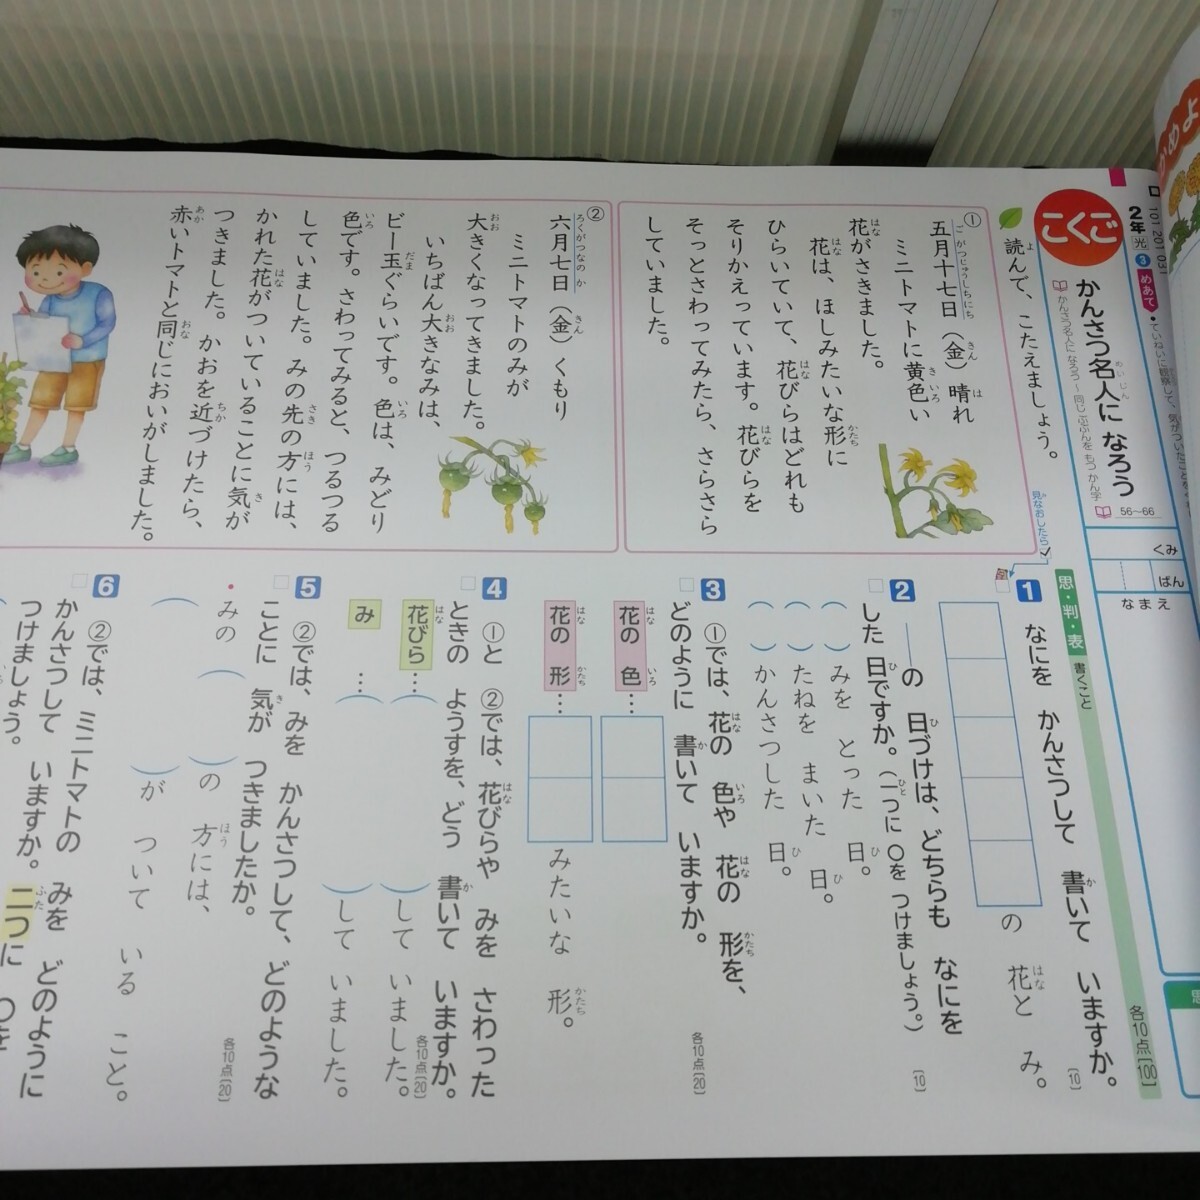 こくご
2年
光
3
めあて
かんさつ名人に なろう
かんさつ名人に なろう～同じ ぶぶんを もつ かん字
56～66
くみ
ばん
なまえ
読んで、こたえましょう。
①
五月十七日（金）晴れ
ミニトマトに黄色い
花がさきました。
花は、ほしみたいな形に
ひらいていて、花びらはどれも
そりかえっています。花びらを
そっとさわってみたら、さらさら
していました。
②
六月七日（金）くもり
ミニトマトのみが
大きくなってきました。
いちばん大きなみは、
ビー玉ぐらいです。色は、みどり
色です。さわってみると、つるつる
していました。みの先の方には、
かれた花がついていることに気が
つきました。かおを近づけたら、
赤いトマトと同じにおいがしました。
見なおしたら
思・判・表 書くこと
各10点〔100〕
1 なにを かんさつして 書いて いますか。
〔10〕
の 花と み。
2 ――の 日づけは、どちらも なにを
した 日ですか。（一つに ○を つけましょう。）
〔10〕
（ ）みを とった 日。
（ ）たねを まいた 日。
（ ）かんさつした 日。
3 ①では、花の 色や 花の 形を、
どのように 書いて いますか。
各10点〔20〕
花の 色…
花の 形… みたいな 形。
4 ①と ②では、花びらや みを さわった
ときの ようすを、どう 書いて いますか。
各10点〔20〕
花びら…（ ）して いました。
み …（ ）して いました。
5 ②では、みを かんさつして、どのような
ことに 気が つきましたか。
各10点〔20〕
・みの（ ）の 方には、
（ ）が ついて いる こと。
6 ②では、ミニトマトの みを どのように
かんさつして いますか。二つに ○を
つけましょう。